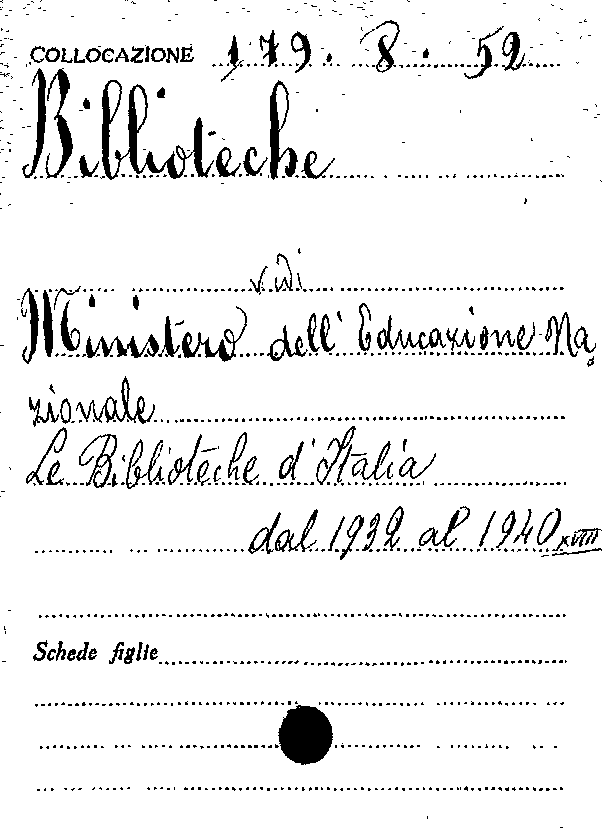 COLLOCAZIONE 179. 8. 52
Biblioteche
vidi
Ministero dell'Educazione Na
zionale
Le Biblioteche d'Italia
dal 1932 al 1940 XVIII
Schede figlie